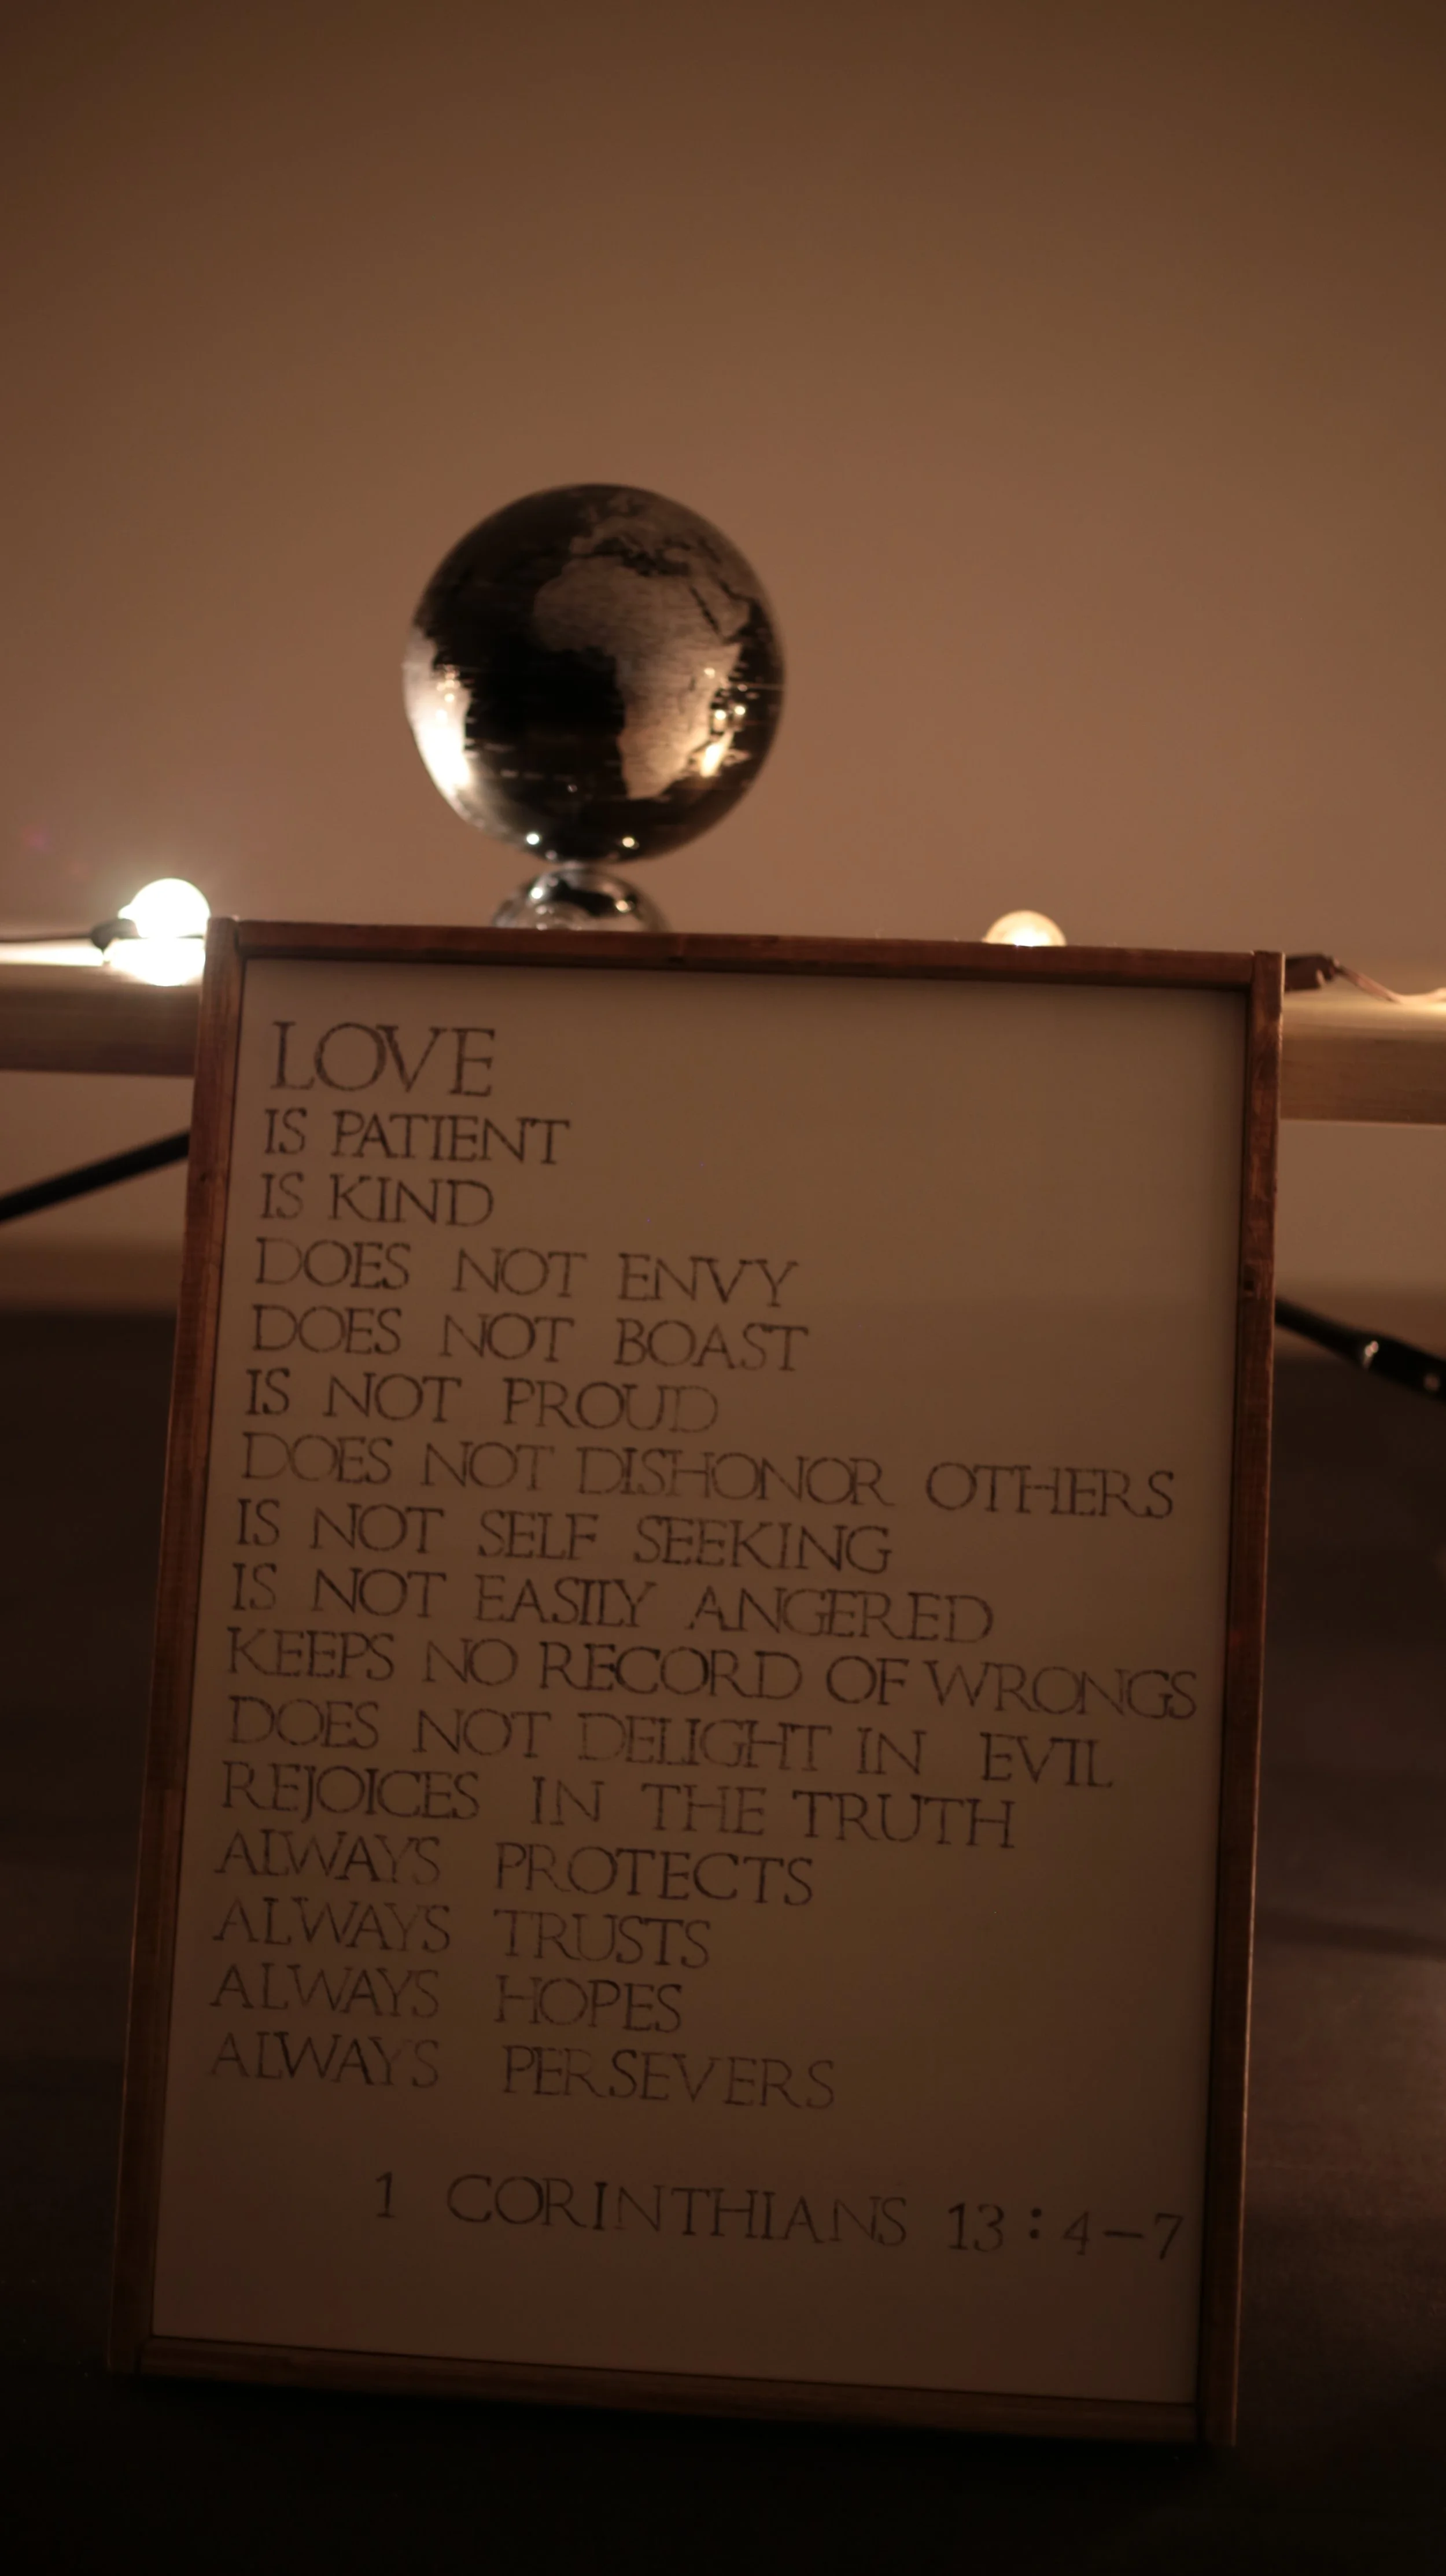 LOVE
IS PATIENT
IS KIND
DOES NOT ENVY
DOES NOT BOAST
IS NOT PROUD
DOES NOT DISHONOR OTHERS
IS NOT SELF SEEKING
IS NOT EASILY ANGERED
KEEPS NO RECORD OF WRONGS
DOES NOT DELIGHT IN EVIL
REJOICES IN THE TRUTH
ALWAYS PROTECTS
ALWAYS TRUSTS
ALWAYS HOPES
ALWAYS PERSEVERS
1 CORINTHIANS 13:4-7